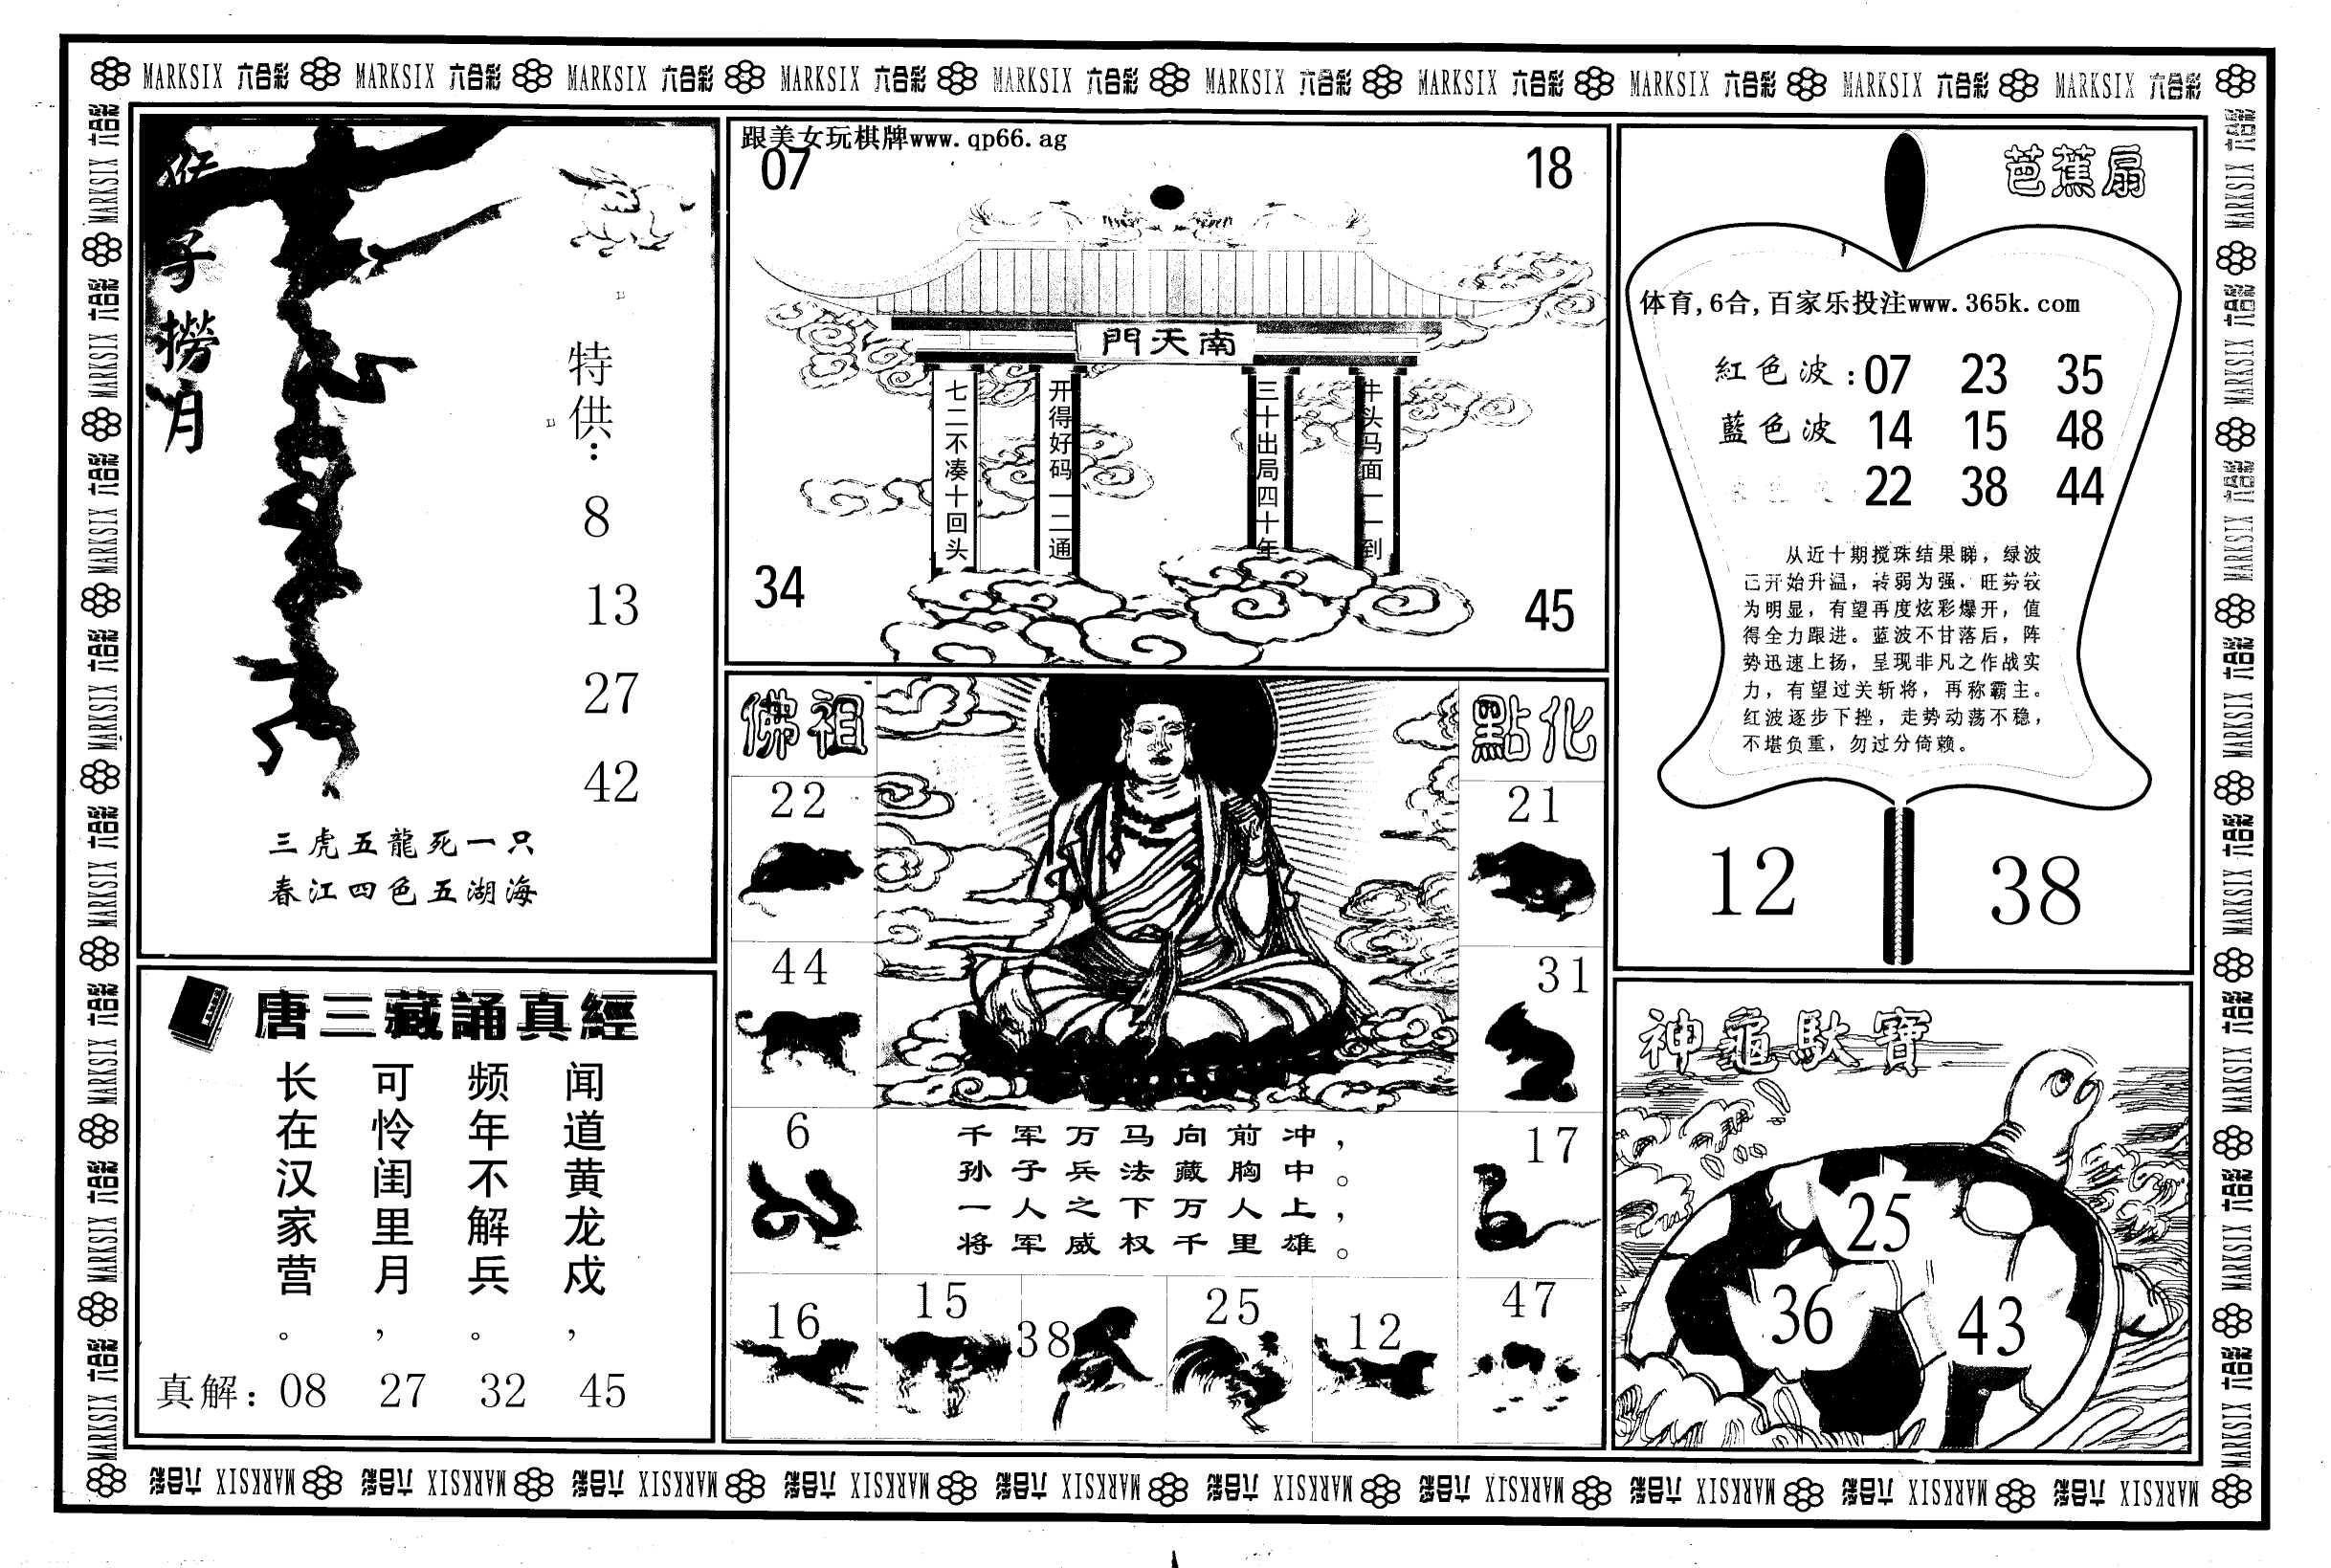 MARKSIX 六合彩 MARKSIX 六合彩 MARKSIX 六合彩 MARKSIX 六合彩 MARKSIX 六合彩 MARKSIX 六合彩 MARKSIX 六合彩 MARKSIX 六合彩 MARKSIX 六合彩 MARKSIX 六合彩
猴子撈月
特供:
8
13
27
42
三虎五龍死一只
春江四色五湖海
唐三藏誦真經
闻道黄龙戍，
频年不解兵。
可怜闺里月，
长在汉家营。
真解: 08 27 32 45
跟美女玩棋牌www.qp66.ag
07 18
南天門
牛头马面一一到
三十出局四十年
开得好码一二通
七二不凑十回头
34 45
佛祖 點化
22 21
44 31
6 17
千军万马向前冲，
孙子兵法藏胸中。
一人之下万人上，
将军威权千里雄。
16 15 38 25 12 47
芭蕉扇
体育,6合,百家乐投注www.365k.com
紅色波:07 23 35
藍色波 14 15 48
22 38 44
从近十期搅珠结果睇，绿波
已开始升温，转弱为强，旺势较
为明显，有望再度炫彩爆开，值
得全力跟进。蓝波不甘落后，阵
势迅速上扬，呈现非凡之作战实
力，有望过关斩将，再称霸主。
红波逐步下挫，走势动荡不稳，
不堪负重，勿过分倚赖。
12 38
神龜馱寶
25
36 43
MARKSIX 六合彩 MARKSIX 六合彩 MARKSIX 六合彩 MARKSIX 六合彩 MARKSIX 六合彩 MARKSIX 六合彩 MARKSIX 六合彩 MARKSIX 六合彩 MARKSIX 六合彩 MARKSIX 六合彩
MARKSIX 六合彩 MARKSIX 六合彩 MARKSIX 六合彩 MARKSIX 六合彩 MARKSIX 六合彩 MARKSIX 六合彩 MARKSIX 六合彩 MARKSIX 六合彩
MARKSIX 六合彩 MARKSIX 六合彩 MARKSIX 六合彩 MARKSIX 六合彩 MARKSIX 六合彩 MARKSIX 六合彩 MARKSIX 六合彩 MARKSIX 六合彩